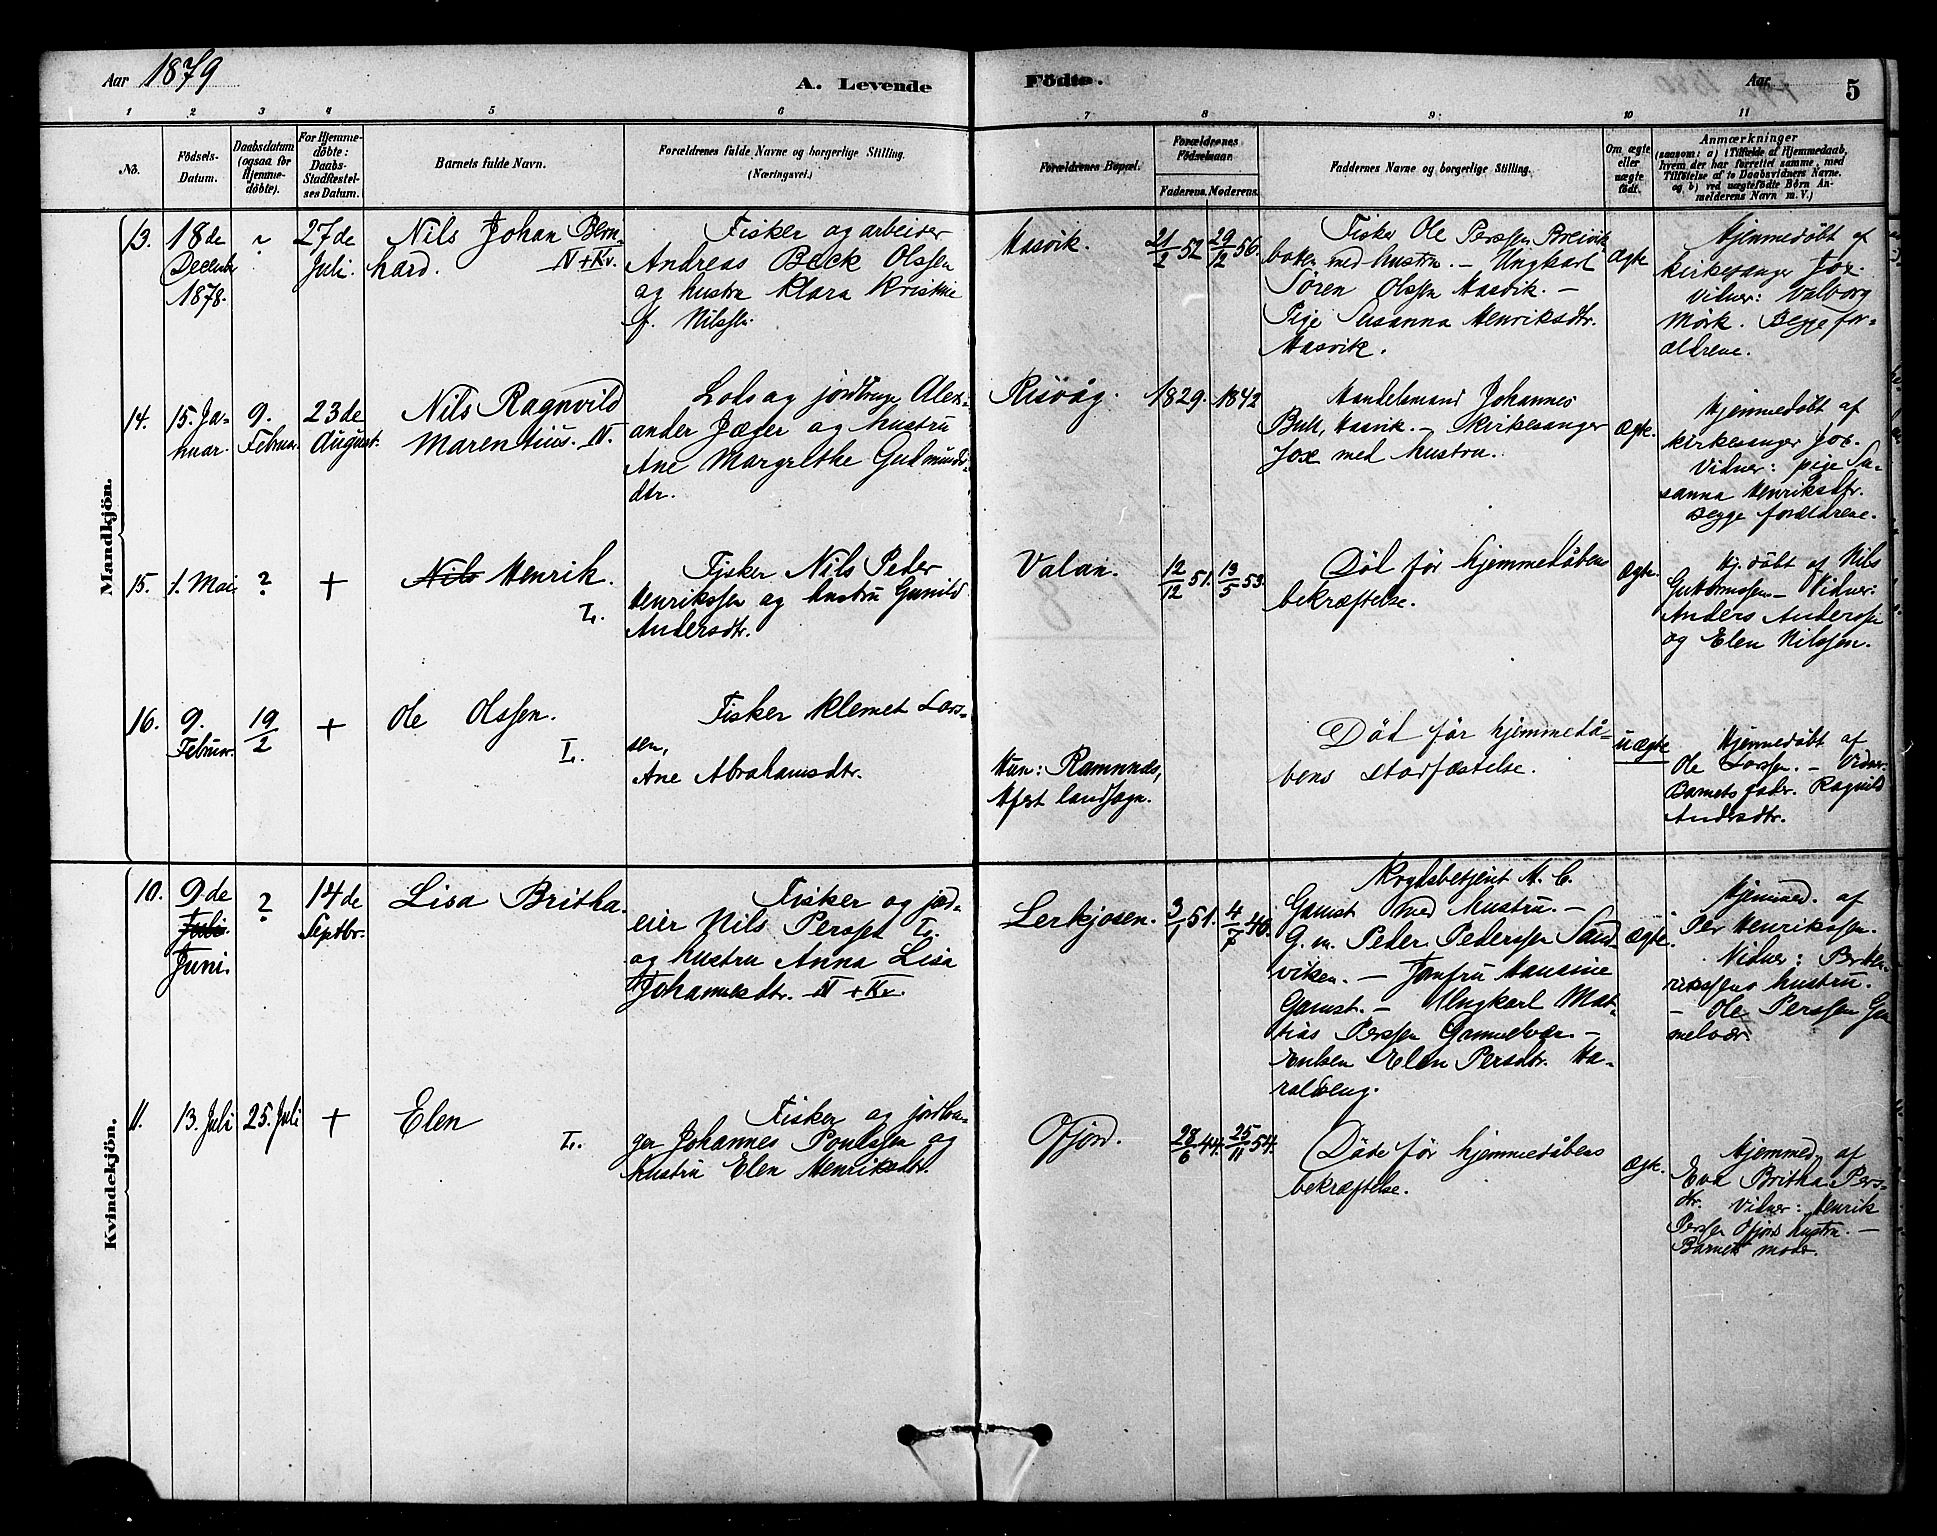 Aar 1879
A. Levende Födte.
Aar
5
1 2 3 4 5 6 7 8 9 10 11
No.
Födsels-Datum.
Daabsdatum (ogsaa for Hjemmedöbte).
For Hjemmedöbte: Daabs-Stadfæstelses Datum.
Barnets fulde Navn.
Forældrenes fulde Navne og borgerlige Stilling. (Næringsvei.)
Forældrenes Bopæl.
Forældrenes Födselsaar.
Faderens. Moderens.
Faddernes Navne og borgerlige Stilling.
Om ægte eller uægte födt.
Anmærkninger
(saasom: a) i Tilfælde af Hjemmedaab, hvem der har forrettet samme, med Tilföielse af to Daabsvidners Navne. og b) ved uægtefödte Börn Anmelderens Navn m. V.)
Mandkjön.
13.
18de
Decemb.
1878.
27de
Juli.
Nils Johan Bern-
hard. N+Kv.
Fisker og arbeider
Andreas Beck Olssen
og hustru Klara Kristine
f. Nilssen.
Hasvik.
21/2 52
29/12 56.
Fisker Ole Perssen Breivik
boten med hustru. – Ungkarl
Sören Olssen Hasvik. –
Pige Susanna Henriksdtr.
Hasvik.
ægte
Hjemmedöbt af
kirkesanger Fox.
Vidner: Valborg
Mörk. Begge for-
ældrene.
14.
15. Ja-
nuar.
9.
Februar.
23de
August.
Nils Ragnvild
Marentius. N.
Lods og jordbruger Alex-
ander Jæger og hustru
Ane Margrethe Gudmunds-
dtr.
Risvåg.
1829.
1842
Handelsmand Johannes
Buck, Hasvik. – Kirkesanger
Fox med hustru.
ægte.
Hjemmedöbt af
kirkesanger Fox.
Vidner: pige Su-
sanna Henriksdtr.
Begge forældrene.
15.
1. Mai
?
+
Nils Henrik.
L.
Fisker Nils Peder
Henrikssen og hustru Gunild
Andersdtr.
Valan.
12/12 51.
13/5 53.
Död för hjemmedåbens
bekræftelse.
ægte.
Hj. döbt af Nils
Guttormssen – Vidner:
Anders Anderssen
og Elen Nilssen.
16.
9.
Februar.
19/2
+
Ole Olssen.
L.
Fisker Klemet Lars-
sen,
Ane Abrahamsdtr.
Hun: Ramnnæs,
Hfest landsogn.
Död för hjemmedå-
bens stadfæstelse.
uægte
Hjemmedöbt af
Ole Larssen. – Vidner:
Barnets fader. Ragnild
Andersdtr.
Kvindekjön.
10.
9de
Juli.
Juni.
?
14de
Septbr.
Lisa Britha.
Fisker og jord-
eier Nils Perssen L.
og hustru Anna Lisa
Johannesdtr. N+Kv.
Lerkjosen.
3/1 51.
4/7 46.
M. C.
Gamst med hustru. –
G. m. Peder Pederssen Sand-
viken. – Jomfru Hansine
Gamst. – Ungkarl Mat-
tias Perssen Gammelvær –
Enken Elen Persdtr. Ha-
raldseng.
ægte.
Hjemmed. af
Per Henrikssen.
Vidner: P. Hen-
rikssens hustru.
– Ole Perssen Ga-
melvær.
11.
13. Juli
25. Juli
+
Elen
L.
Fisker og jordbru-
ger Johannes Poulssen og
hustru Elen Henriksdtr.
Ofjord.
28/6 44.
25/11 54.
Döde för hjemmedåbens
bekræftelse.
ægte.
Hjemmed. af
Eva Britha Pers-
dtr. Vidner: Henrik
Perssen Ofjord hustru. –
Barnets moder.